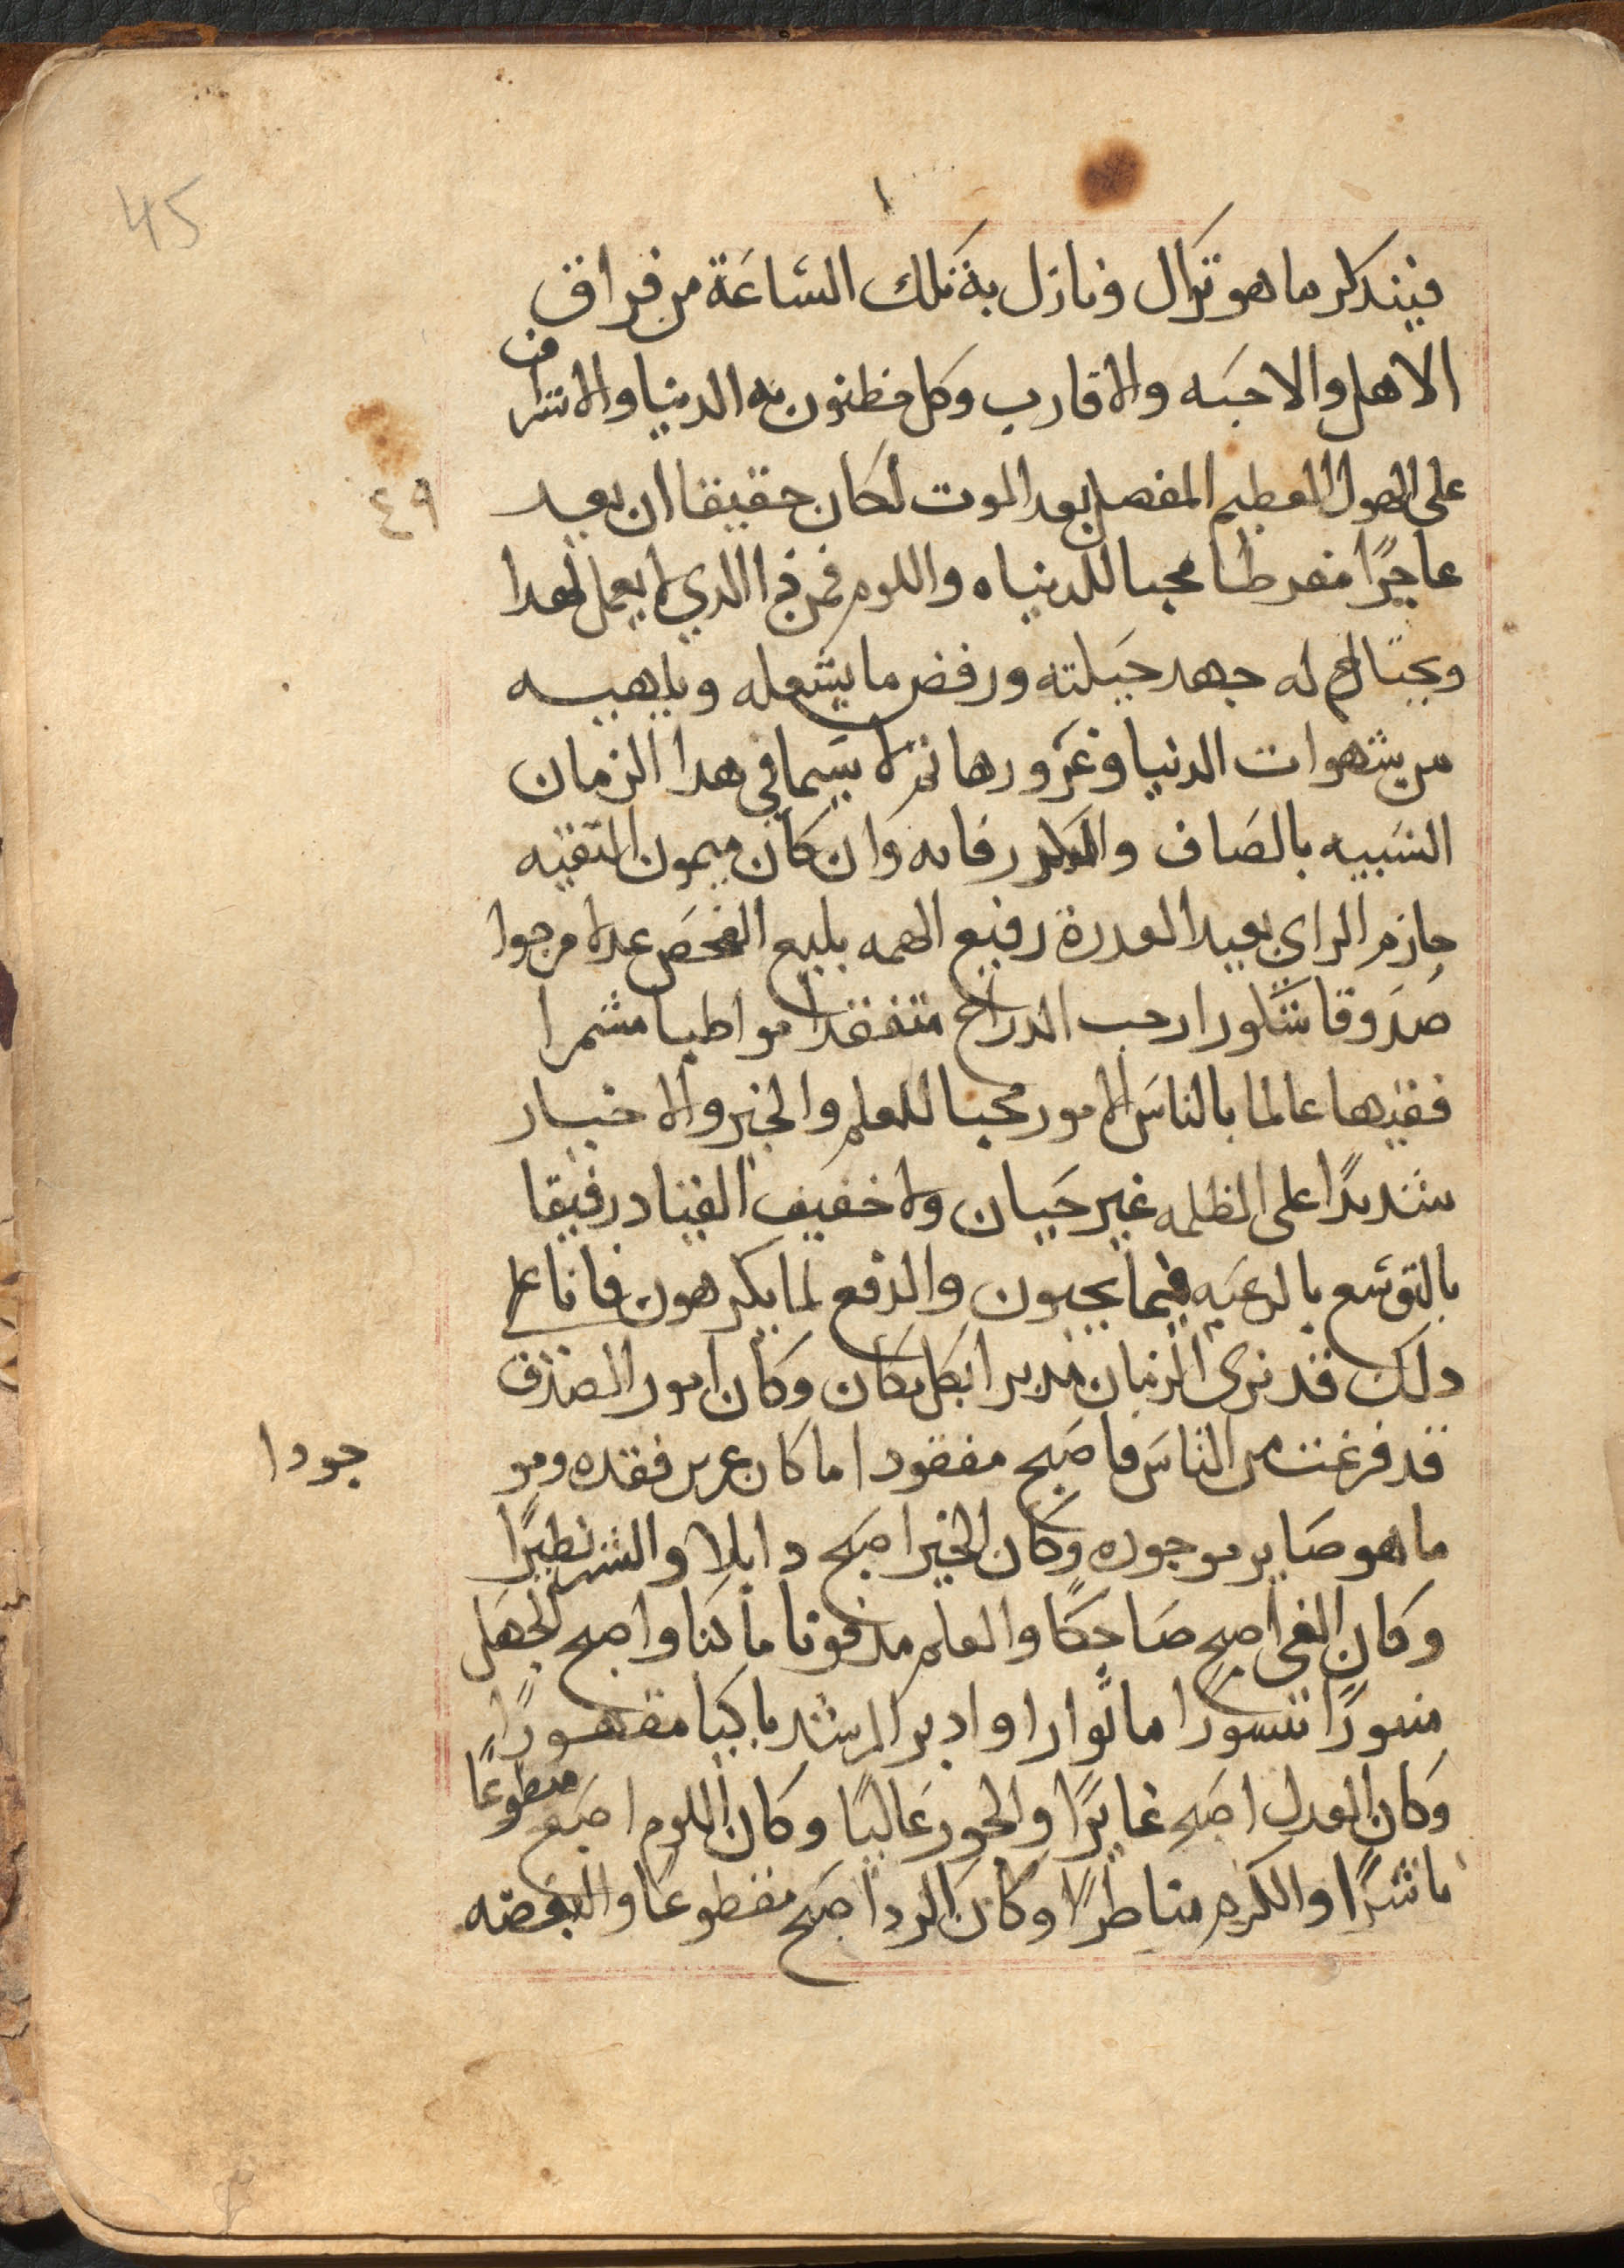 45
فيتدكر ما هو نزال ونازل به تلك الساعة من فراق
الاهل والاحبه والاقارب وكل مظنون به الدنيا والاشراف
على الهول العظيم المفصل بعد الموت لكان حقيقا ان يعد
٤٩
عاجزا مفرطا محبا للدنياه واللوم فمن ذا الدي لا يعمل لغدا
ويحتال له جهد حيلته ورفض ما يشغله ويلهيه
من شهوات الدنيا وغرورها ثم لا سيما في هدا الزمان
الشبيه بالصاف والكدر فانه وان كان ميمون النقيه
حازم الراي بعيد القدرة رفيع الهمه بليغ الفحص عدلا مرجوا
صدوقا شكورا رحب الدراع متفقدا مواظبا مشمرا
فقيها عالما بالناس الامور محبا للعلم والخير والاخيار
شديدا على الظلمه غير جبان ولا خفيف القياد رفيقا
بالتوسع بالرعيه فيما يحبون والدفع لما يكرهون فانا على
دلك قد نرى الزمان مدبرا بكل مكان وكان امور الصدق
قد فرغت من الناس فاصبح مفقودا ما كان عزيز فقده ومو
جودا
ما هو صاير موجوده وكان الخير اصبح دابلا والشر نظيرا
وكان الغي اصبح صاحكا والعلم مدفونا ماكنا واصبح الجهل
منسورا ماثوارا وادبر الرشد باكيا مقهورا
وكان العدل اصبح غايرا والجور غالبا وكان اللوم اصبح منطوعا
ناشرا والكرم وكان الردا اصبح مقطوعا والبغضه